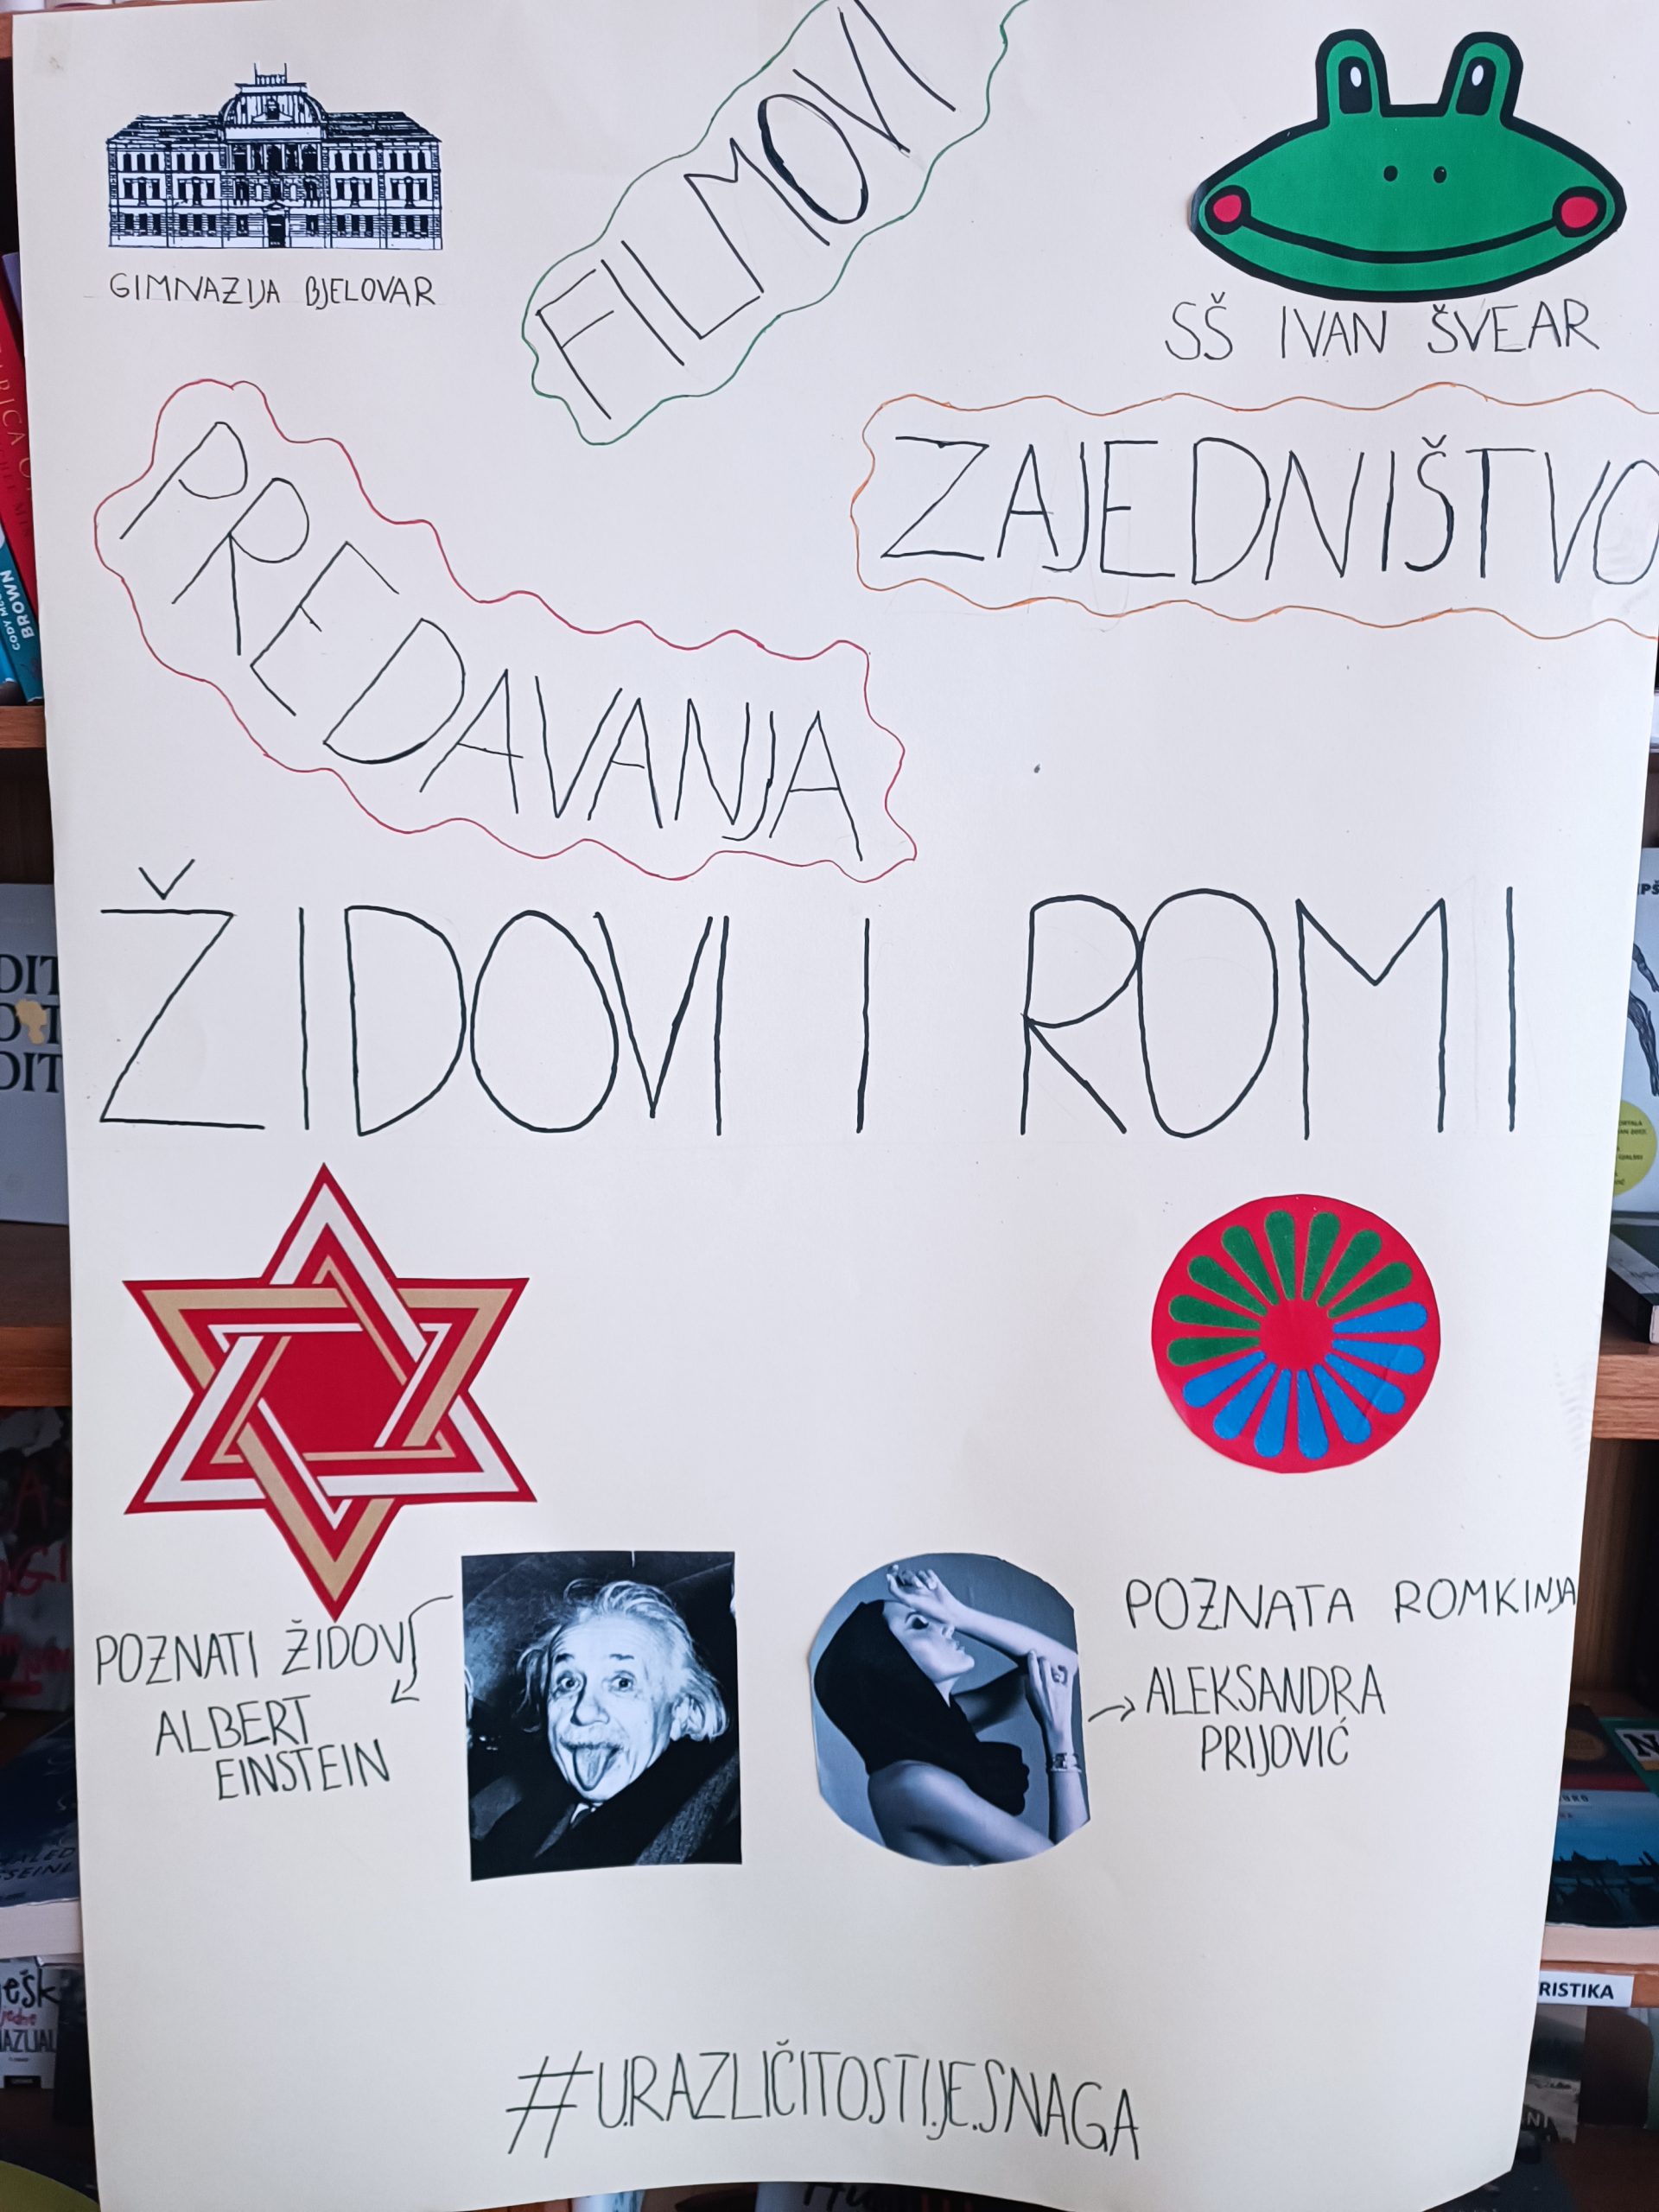 FILMOVI
GIMNAZIJA BJELOVAR
SŠ IVAN ŠVEAR
ZAJEDNIŠTVO
PREDAVANJA
ŽIDOVI I ROMI
POZNATI ŽIDOV
ALBERT
EINSTEIN
POZNATA ROMKINJA
ALEKSANDRA
PRIJOVIĆ
#U.RAZLIČITOSTI.JE.SNAGA
BROWN
RISTIKA